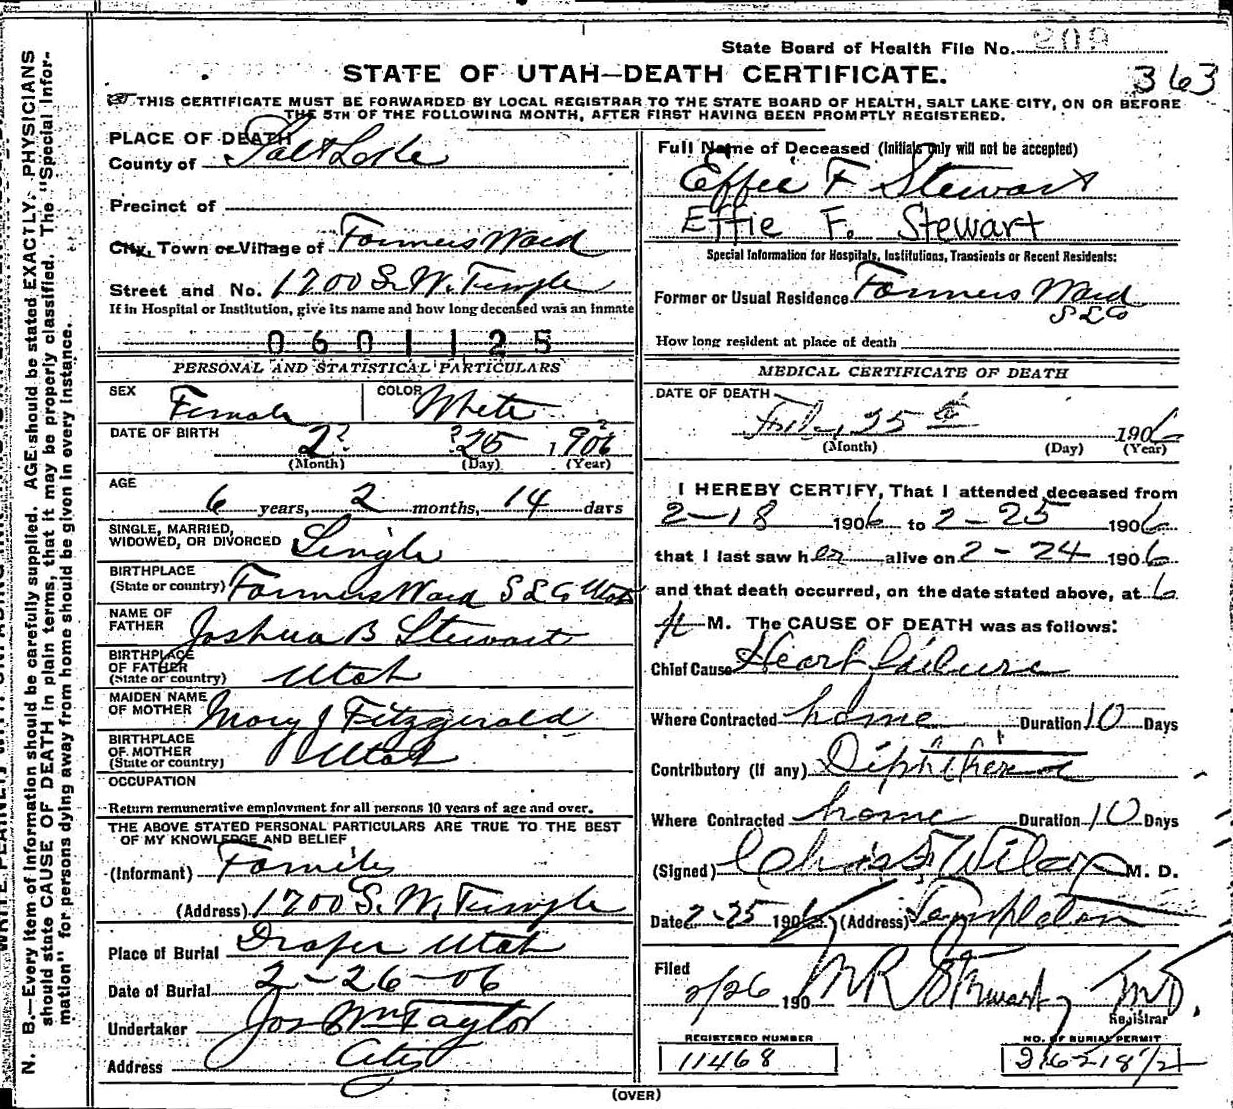 State Board of Health File No. 209
STATE OF UTAH—DEATH CERTIFICATE.
363
THIS CERTIFICATE MUST BE FORWARDED BY LOCAL REGISTRAR TO THE STATE BOARD OF HEALTH, SALT LAKE CITY, ON OR BEFORE
THE 5TH OF THE FOLLOWING MONTH, AFTER FIRST HAVING BEEN PROMPTLY REGISTERED.
PLACE OF DEATH
County of Salt Lake
Precinct of
City, Town or Village of Farmers Ward
Street and No. 1700 S. W. Temple
If in Hospital or Institution, give its name and how long deceased was an inmate
0601125
PERSONAL AND STATISTICAL PARTICULARS
SEX Female COLOR White
DATE OF BIRTH 2? ?25 1906?
(Month) (Day) (Year)
AGE
6 years, 2 months, 14 days
SINGLE, MARRIED,
WIDOWED, OR DIVORCED Single
BIRTHPLACE
(State or country) Farmers Ward S L Co Utah
NAME OF
FATHER Joshua B Stewart
BIRTHPLACE
OF FATHER
(State or country) Utah
MAIDEN NAME
OF MOTHER Mary J Fitzgerald
BIRTHPLACE
OF MOTHER
(State or country) Utah
OCCUPATION
Return remunerative employment for all persons 10 years of age and over.
THE ABOVE STATED PERSONAL PARTICULARS ARE TRUE TO THE BEST
OF MY KNOWLEDGE AND BELIEF
(Informant) Family
(Address) 1700 S. W. Temple
Place of Burial Draper Utah
Date of Burial 2-26-06
Undertaker Jos Wm Taylor
Address City
Full Name of Deceased (Initials only will not be accepted)
Effie F Stewart
Effie F. Stewart
Special Information for Hospitals, Institutions, Transients or Recent Residents:
Former or Usual Residence Farmers Ward
S L Co
How long resident at place of death
MEDICAL CERTIFICATE OF DEATH
DATE OF DEATH
Feb., 25th 1906
(Month) (Day) (Year)
I HEREBY CERTIFY, That I attended deceased from
2-18 1906 to 2-25 1906
that I last saw her alive on 2-24 1906
and that death occurred, on the date stated above, at 6
M. The CAUSE OF DEATH was as follows:
Chief Cause Heart failure
Where Contracted home Duration 10 Days
Contributory (If any) Diphtheria
Where Contracted home Duration 10 Days
(Signed) Chas F. Wilcox M. D.
Date 2-25 1906 (Address) Templeton
Filed
2/26 190 M R Stewart, M.D.
Registrar
REGISTERED NUMBER
11468
NO. OF BURIAL PERMIT
N. B.—Every item of information should be carefully supplied. AGE should be stated EXACTLY. PHYSICIANS
should state CAUSE OF DEATH in plain terms, that it may be properly classified. The "Special Infor-
mation" for persons dying away from home should be given in every instance.
(OVER)